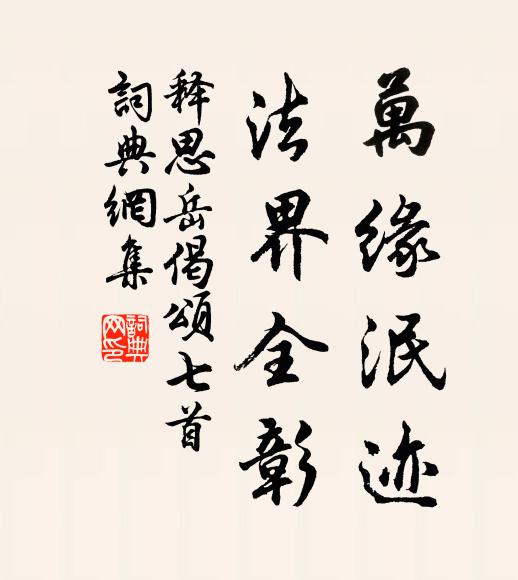 萬缘泯迹
法界全彰
释思岳偈頌七首
詞典網集
詞典网印